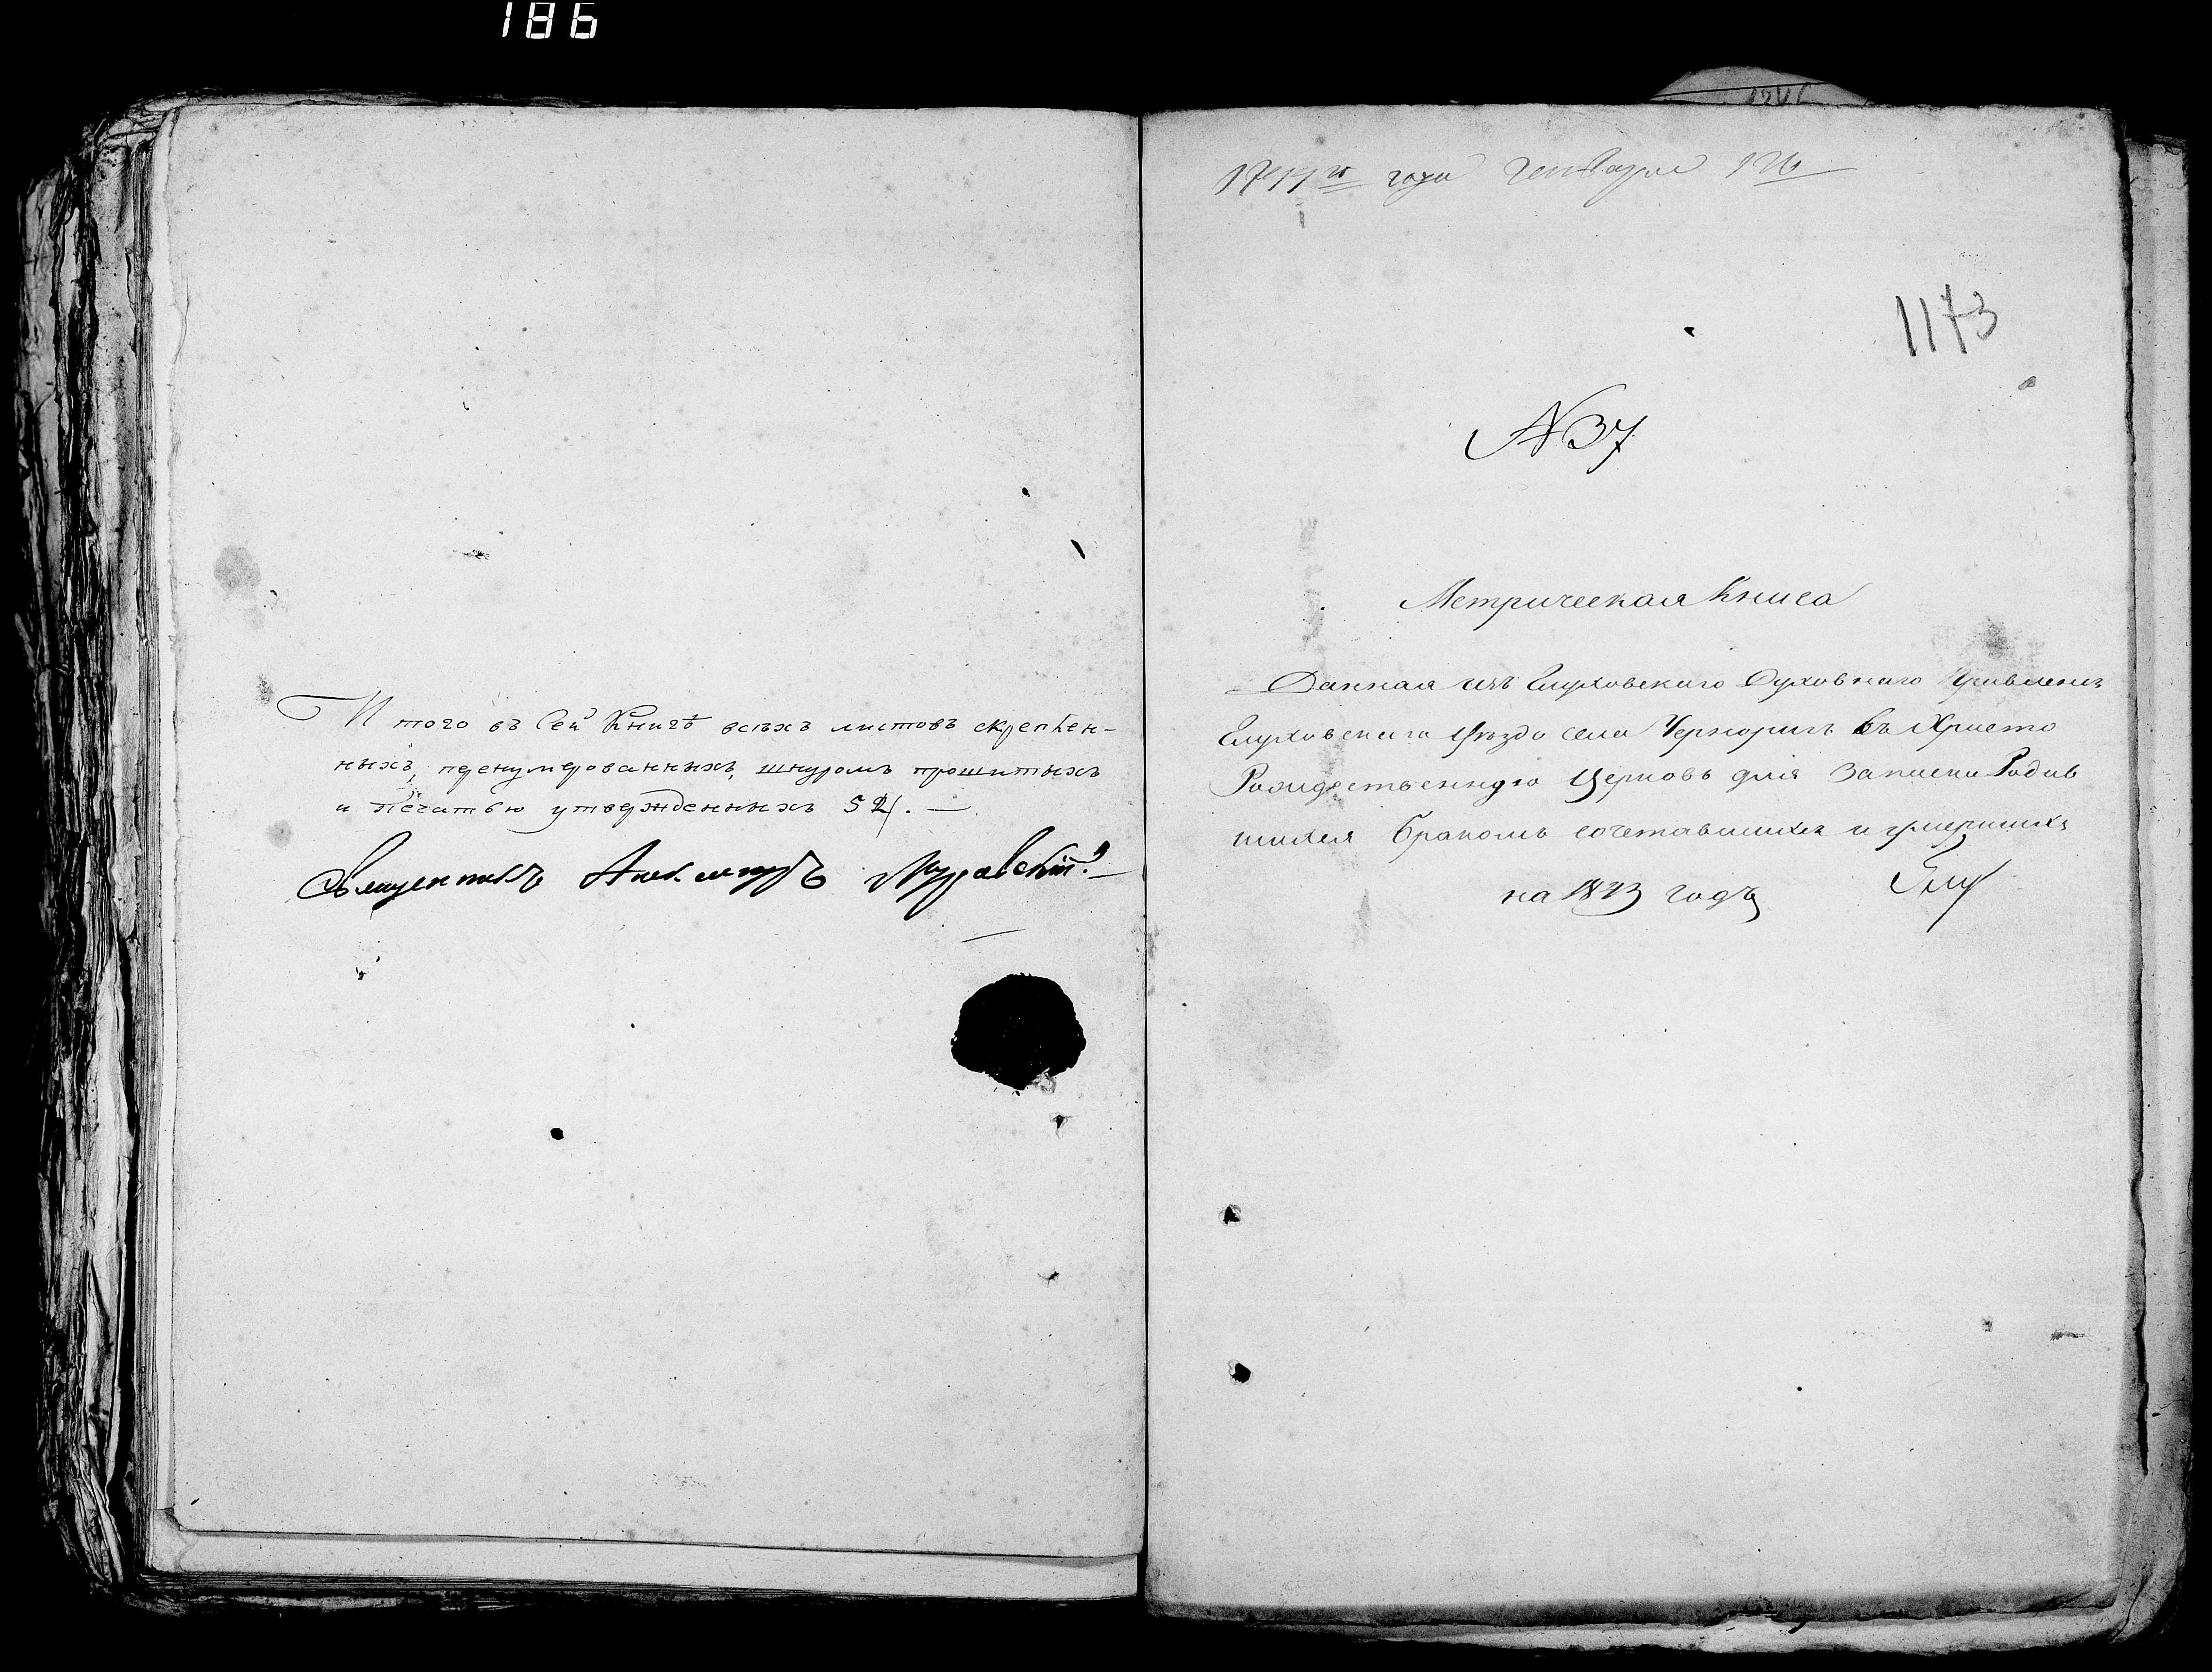 186
Итого въ Сей Книгѣ всѣхъ листовъ скрѣплен-
ныхъ, перенумерованныхъ, шнуромъ прошитыхъ
и печатью утвержденныхъ 52. —
Священникъ Муравскій
года Генваря
1173
№ 37
Метрическая Книга
Данная изъ Глуховскаго Духовнаго Правленія
Глуховскаго уѣзда села Чернориг въ Христо
Рождественную Церковь для записки Родив
шихся Бракомъ сочетавшихся и умершихъ
на 1843 годъ